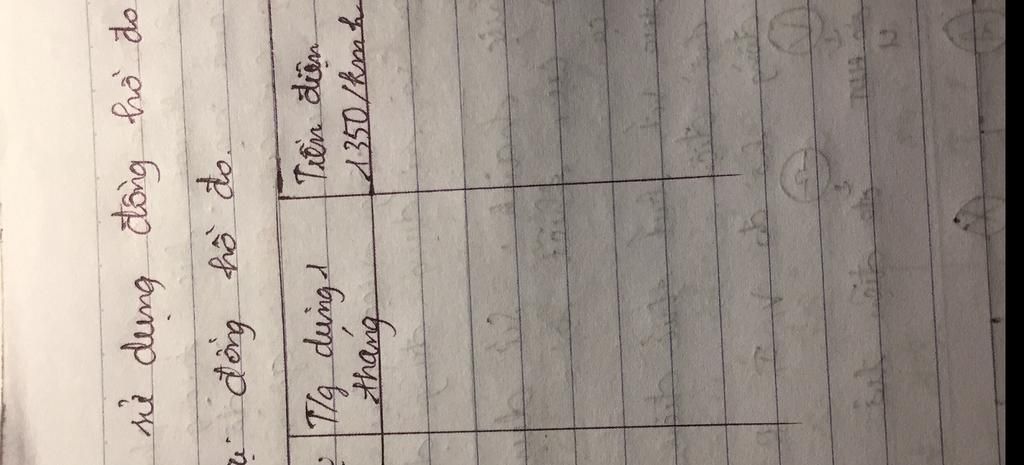 sử dụng đồng hồ đo
đồng hồ đo.
T/g dùng 1
tháng
Tiền điện
1350/kmh